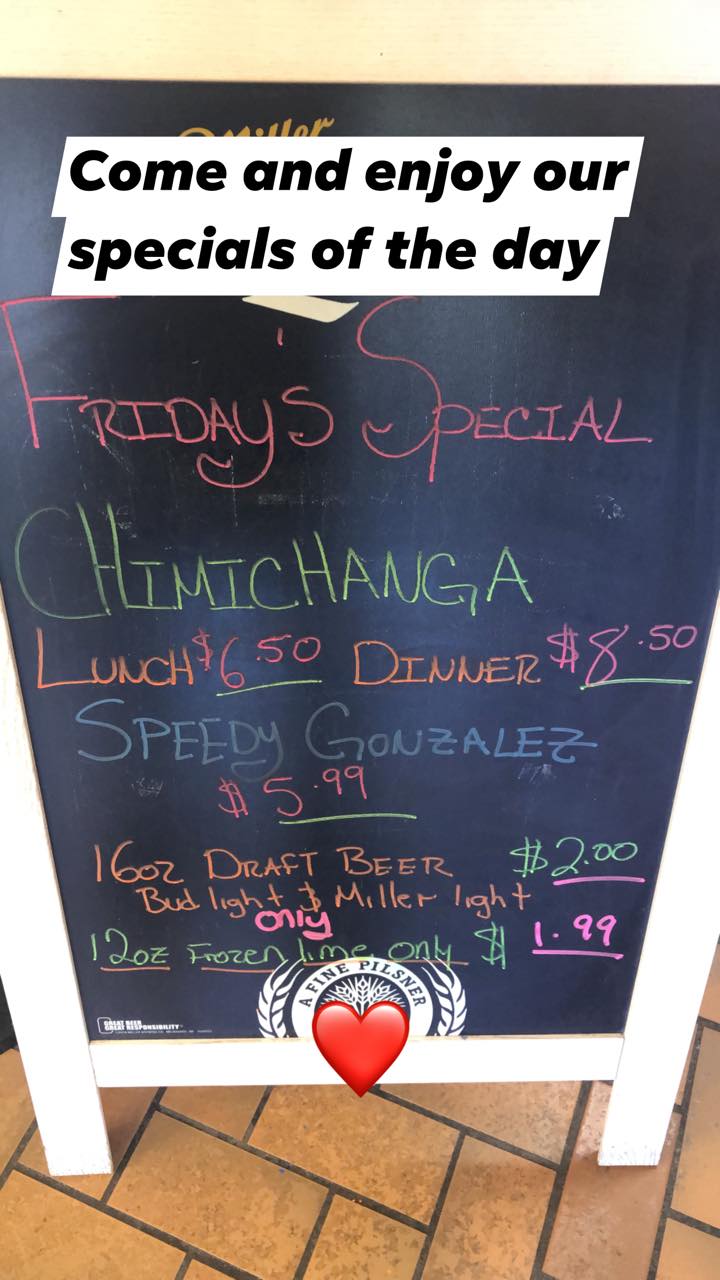 Miller
Come and enjoy our
specials of the day
FRIDAY'S SPECIAL
CHIMICHANGA
LUNCH $6.50 DINNER $8.50
SPEEDY GONZALEZ
$5.99
16oz DRAFT BEER $2.00
Bud light $ Miller light
only
12oz Frozen lime only $1.99
A FINE PILSNER
GREAT BEER
GREAT RESPONSIBILITY